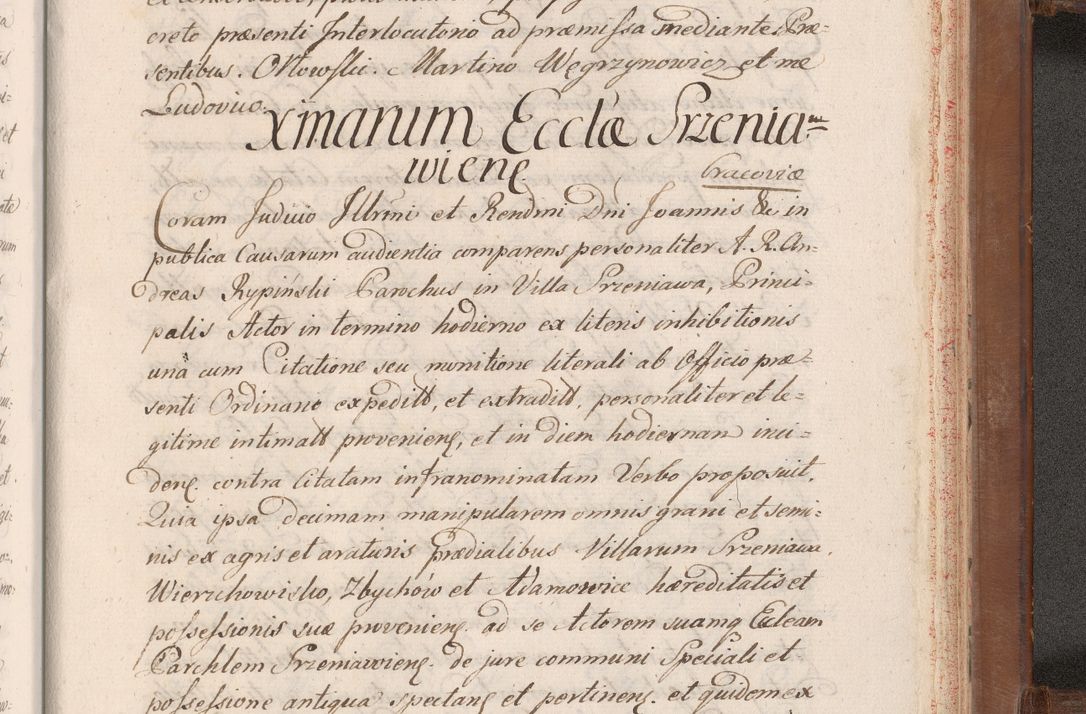 creto præsenti Interlocutorio ad præmissa mediante. Præ-
sentibus. Ottowski. Martino Węgrzynowicz et me
Ludovico.
Xmarum Ecclæ Srzenia-
wienę.
Cracoviæ
Coram Judicio Illrmi et Rendmi Dni Joannis &c in
publica Causarum audientia comparens personaliter A. R. An-
dreas Rypiński Parochus in Villa Srzeniawa, Princi-
palis Actor in termino hodierno ex literis inhibitionis
una cum Citatione seu munitione literali ab Officio præ-
senti Ordinario expeditt, et extraditt, personaliter et le-
gitime intimatt provenienę, et in diem hodiernam inci-
denę contra Citatam infranominatam Verbo proposuit.
Quia ipsa decimam manipularem omnis grani et semi-
nis ex agris et araturis prædialibus Villarum Srzeniawa,
Wierzchowisko, Zbychów et Adamowice hæreditatis et
possessionis suæ provenienę ad se Actorem suamq Eccleam
Parchlem Srzeniawienę. de jure communi Speciali et
possessione antiqua spectanę et pertinenę. et quidem ex